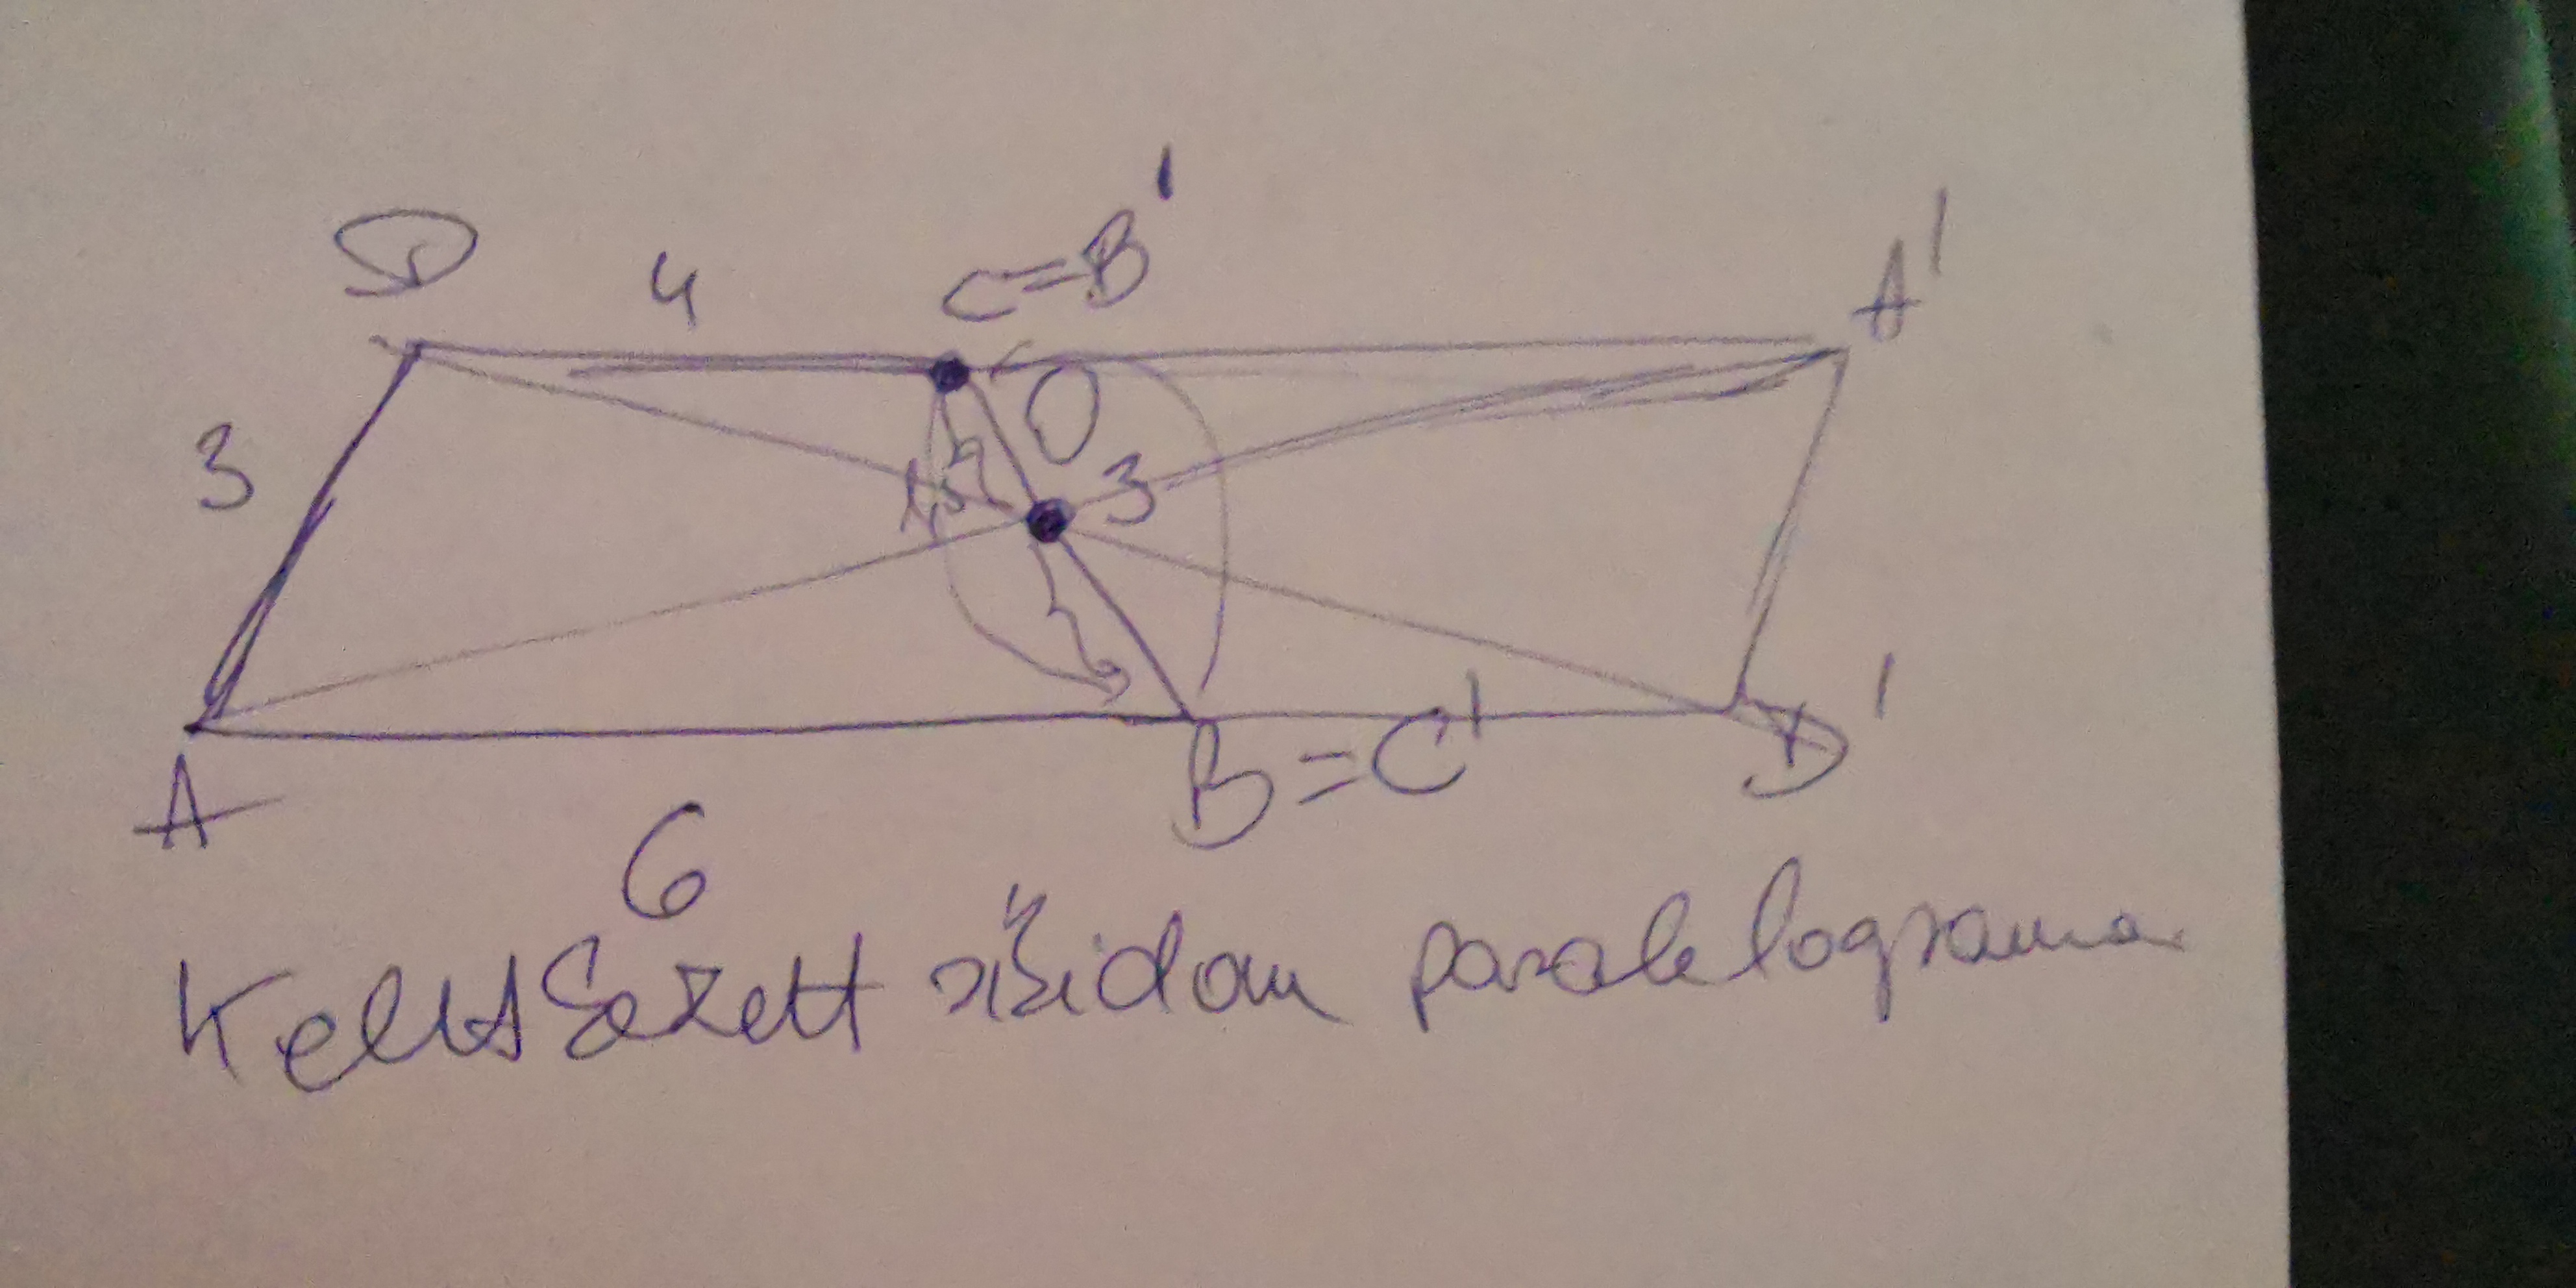 D 4 C=B' A'
3 1,5 O 3
A B=C' D'
6
Keletkezett síkidom paralelogramma